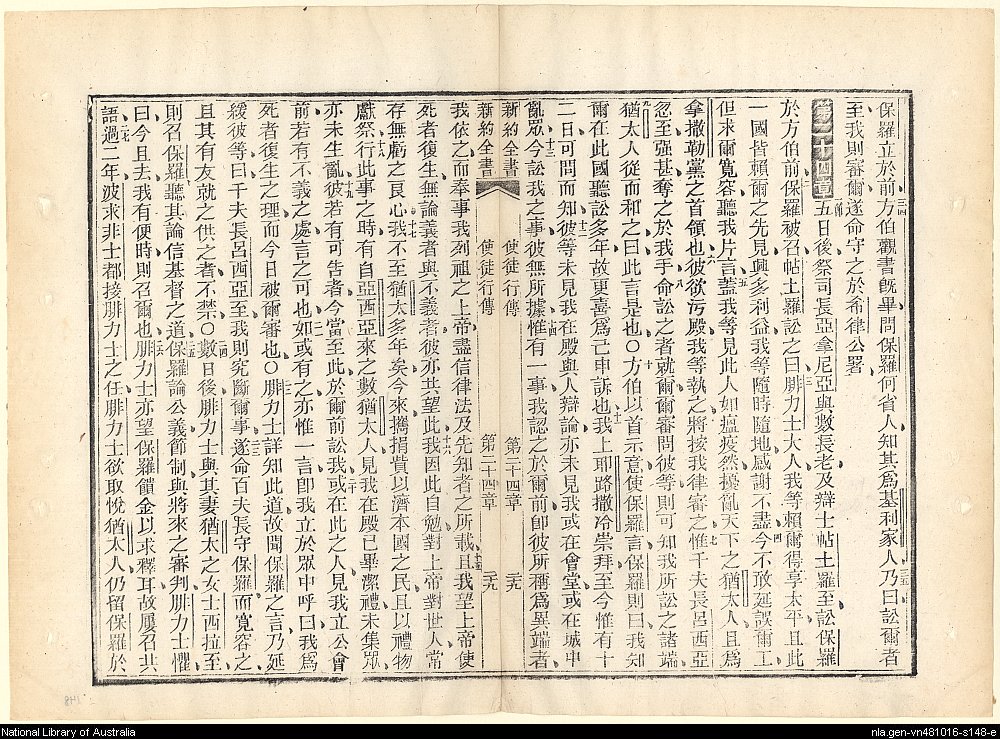 保羅立於前方伯觀書旣畢問保羅何省人知其爲基利家人乃曰訟爾者
至我則審爾遂命守之於希律公署
第二十四章 五日後祭司長亞拿尼亞與數長老及辯士帖土羅至訟保羅
於方伯前保羅被召帖土羅訟之曰腓力士大人我等賴爾得享太平且此
一國皆賴爾之先見興多利益我等隨時隨地感謝不盡今不敢延誤爾工
但求爾寬容聽我片言蓋我等見此人如瘟疫然擾亂天下之猶太人且爲
拿撒勒黨之首領也彼欲污殿我等執之將按我律審之惟千夫長呂西亞
忽至强甚奪之於我手命訟之者就爾爾審問彼等則可知我所訟之諸端
猶太人從而和之曰此言是也〇方伯以首示意使保羅言保羅則曰我知
爾在此國聽訟多年故更喜爲己申訴也我上耶路撒冷崇拜至今惟有十
二日可問而知彼等未見我在殿與人辯論亦未見我或在會堂或在城中
亂眾今訟我之事彼無所據惟有一事我認之於爾前卽彼所稱爲異端者
新約全書 使徒行傳 第二十四章 二十九
新約全書 使徒行傳 第二十四章 二十九
我依之而奉事我列祖之上帝盡信律法及先知者之所載且我望上帝使
死者復生無論義者與不義者彼亦共望此我因此自勉對上帝對世人常
存無虧之良心我不至猶太多年矣今來攜捐貲以濟本國之民且以禮物
獻祭行此事之時有自亞西亞來之數猶太人見我在殿已畢潔禮未集眾
亦未生亂彼若有可告者今當至此於爾前訟我或在此之人見我立公會
前若有不義之處言之可也如或有之亦惟一言卽我立於眾中呼曰我爲
死者復生之理而今日被爾審也〇腓力士詳知此道故聞保羅之言乃延
緩彼等曰千夫長呂西亞至我則究斷爾事遂命百夫長守保羅而寬容之
且其有友就之供之者不禁〇數日後腓力士與其妻猶太之女士西拉至
則召保羅聽其論信基督之道保羅論公義節制與將來之審判腓力士懼
曰今且去我有便時則召爾也腓力士亦望保羅饋金以求釋耳故屢召共
語過二年波求非士都接腓力士之任腓力士欲取悅猶太人仍留保羅於
National Library of Australia
nla.gen-vn481016-s148-e